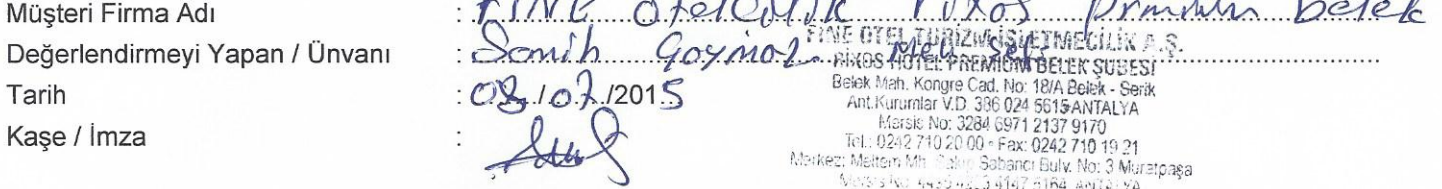 Müşteri Firma Adı : FINE Otelcilik Rixos Prmium Belek
Değerlendirmeyi Yapan / Ünvanı : Semih Goymoz
Tarih : 08/07/2015
Kaşe / İmza :
FINE OTEL TURİZM İŞLETMECİLİK A.Ş.
RIXOS HOTEL PREMIUM BELEK ŞUBESİ
Belek Mah. Kongre Cad. No: 18/A Belek - Serik
Ant.Kurumlar V.D. 386 024 5615 ANTALYA
Mersis No: 3284 6971 2137 9170
Tel.: 0242 710 20 00 • Fax: 0242 710 19 21
Merkez: Meltem Mh. Sakıp Sabancı Bulv. No: 3 Muratpaşa
Mersis No: ANTALYA